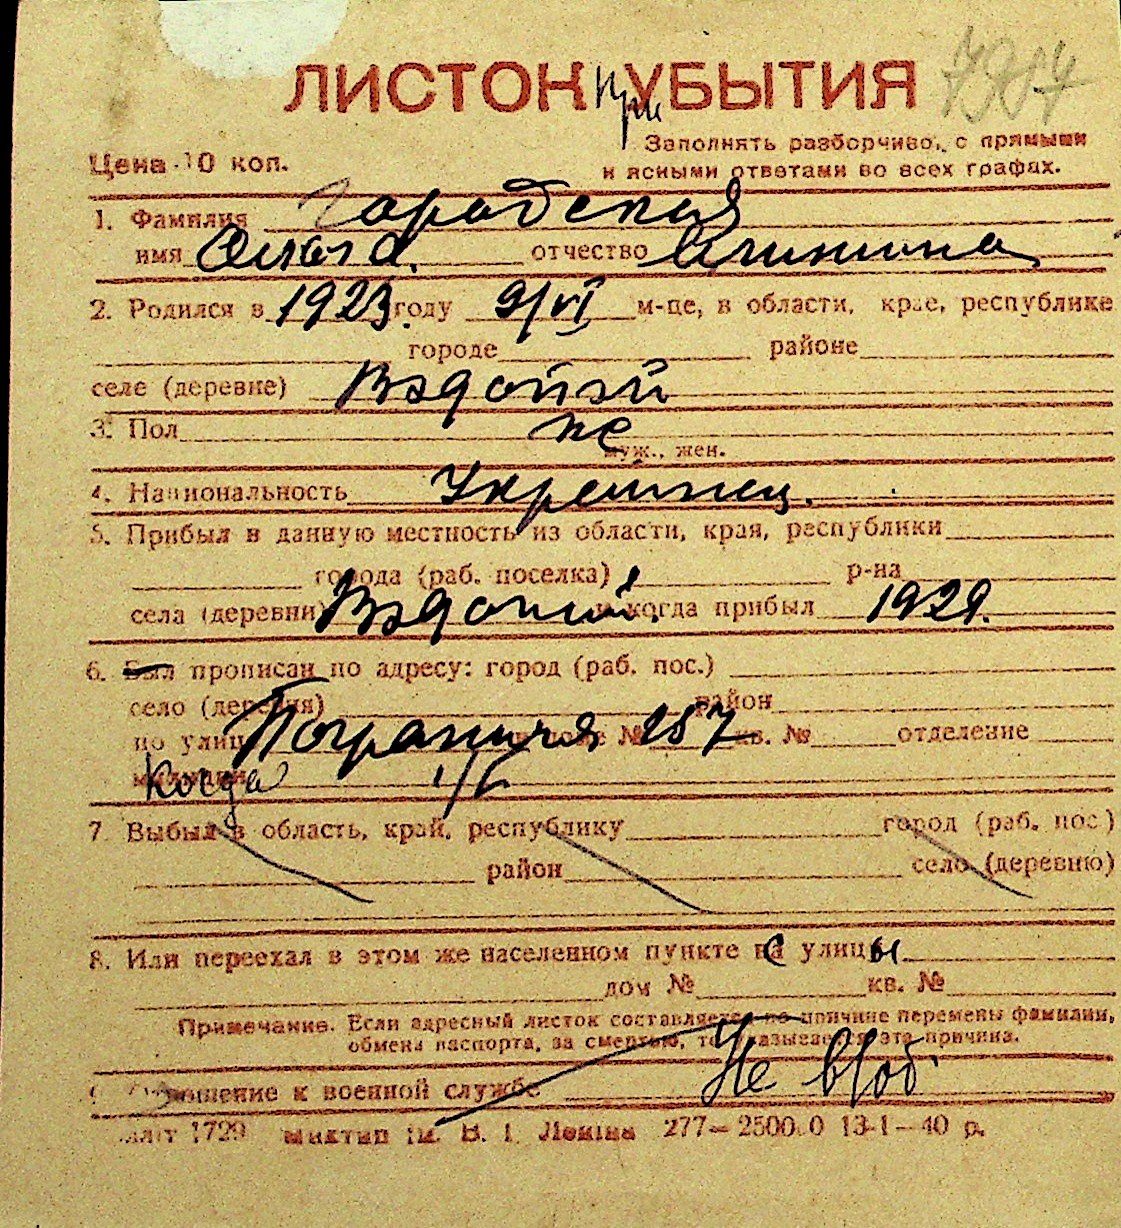 ЛИСТОК при УБЫТИЯ 7987
Заполнять разборчиво, с прямыми
Цена 10 коп. и ясными ответами во всех графах.
1. Фамилия Гарадская
имя отчество
2. Родился в 1923 году 9/VI м-це, в области, крае, республике
городе районе
селе (деревне)
3. Пол
муж., жен.
4. Национальность Украинец.
5. Прибыл в данную местность из области, края, республики
города (раб. поселка) р-на
села (деревни) и когда прибыл 1929.
6. Был прописан по адресу: город (раб. пос.)
село (деревня) район
по улице Погранична доме № 257 кв. № отделение
милиции Когда
7 Выбыл в область, край, республику город (раб. пос.)
район село (деревню)
8. Или переехал в этом же населенном пункте на с улицы
дом № кв. №
Примечание. Если адресный листок составляется по причине перемены фамилии,
обмена паспорта, за смертью, то указывается эта причина.
9 Отношение к военной службе Не в/об.
1729 ім. В. І. Леніна 277—2500.0 13-I—40 р.